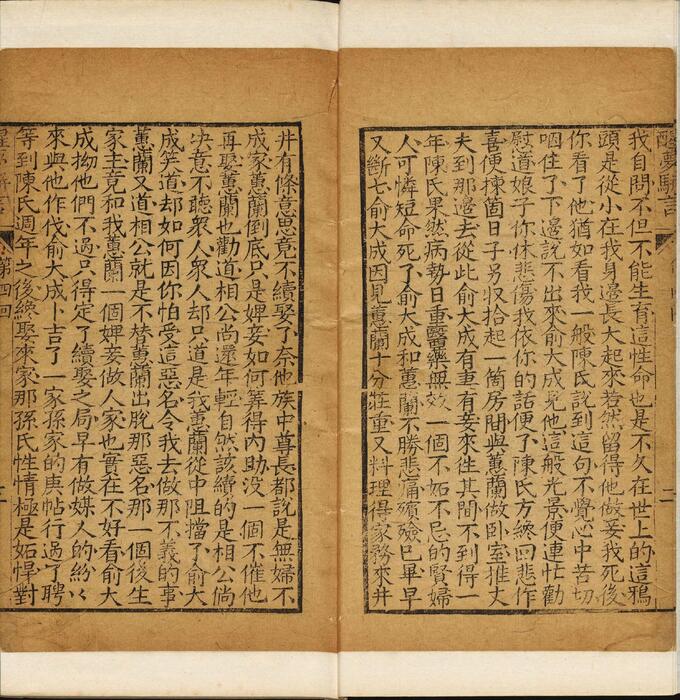 醒夢駢言
我自問不但不能生育這性命也是不久在世上的這鴉
頭是從小在我身邊長大起來若然留得他做妾我死後
你看了他猶如看我一般陳氏說到這句不覺心中苦切
咽住了下邊說不出來俞大成見他這般光景便連忙勸
慰道娘子你休悲傷我依你的話便了陳氏方纔回悲作
喜便揀箇日子另收拾起一箇房間與蕙蘭做卧室推丈
夫到那邊去從此俞大成有妻有妾來徃其間不到得一
年陳氏果然病勢日重醫藥無效一個不妬不忌的賢婦
人可憐短命死了俞大成和蕙蘭不勝悲痛殯殮已畢早
又斷七俞大成因見蕙蘭十分莊重又料理得家務來井
井有條意思竟不續娶了奈他族中尊長都說是無婦不
成家蕙蘭到底只是婢妾如何算得內助沒一個不催他
再娶蕙蘭也勸道相公尚還年輕自然該續的是相公倘
決意不聽衆人衆人却只道是我蕙蘭從中阻擋了俞大
成笑道却如何因你怕受這惡名令我去做那不義的事
蕙蘭又道相公就是不替蕙蘭出脫那惡名那一個後生
家主竟和我蕙蘭一個婢妾做人家也實在不好看俞大
成拗他們不過只得定了續娶之局早有做媒人的紛〻
來與他作伐俞大成卜吉了一家孫家的庚帖行過了聘
等到陳氏週年之後纔娶來家那孫氏性情極是妬悍對
醒夢駢言
第四回
二